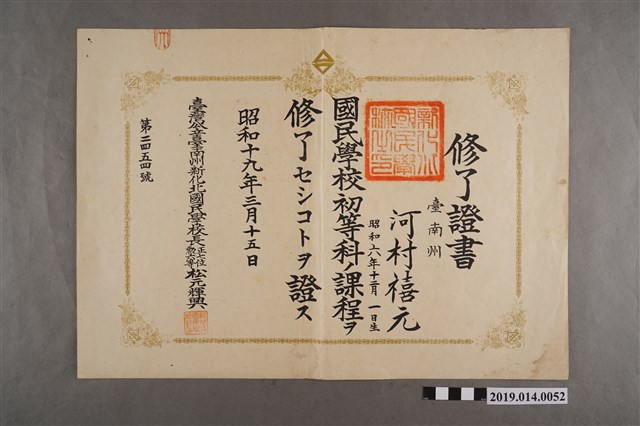 修了證書
臺南州
河村禧元
昭和六年十二月一日生
新化北國民學校之印
國民學校初等科ノ課程ヲ
修了セシコトヲ證ス
昭和十九年三月十五日
臺灣公立臺南州新化北國民學校長正七位松元輝興
第二四五四號
2019.014.0052